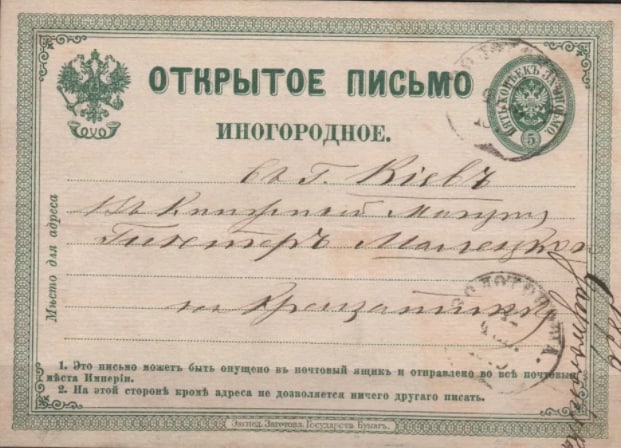 ОТКРЫТОЕ ПИСЬМО
ПЯТЬ КОПѢЕКЪ ЗА ПИСЬМО
5
ИНОГОРОДНОЕ.
Мѣсто для адреса
въ г. Кіевъ
Въ Книжный
на Крещатикѣ
ЗОЛОТОНОША.
1. Это письмо можетъ быть опущено въ почтовый ящикъ и отправлено во всѣ почтовыя
мѣста Имперіи.
2. На этой сторонѣ кромѣ адреса не дозволяется ничего другаго писать.
Экспед. Заготовл. Государств. Бумагъ.